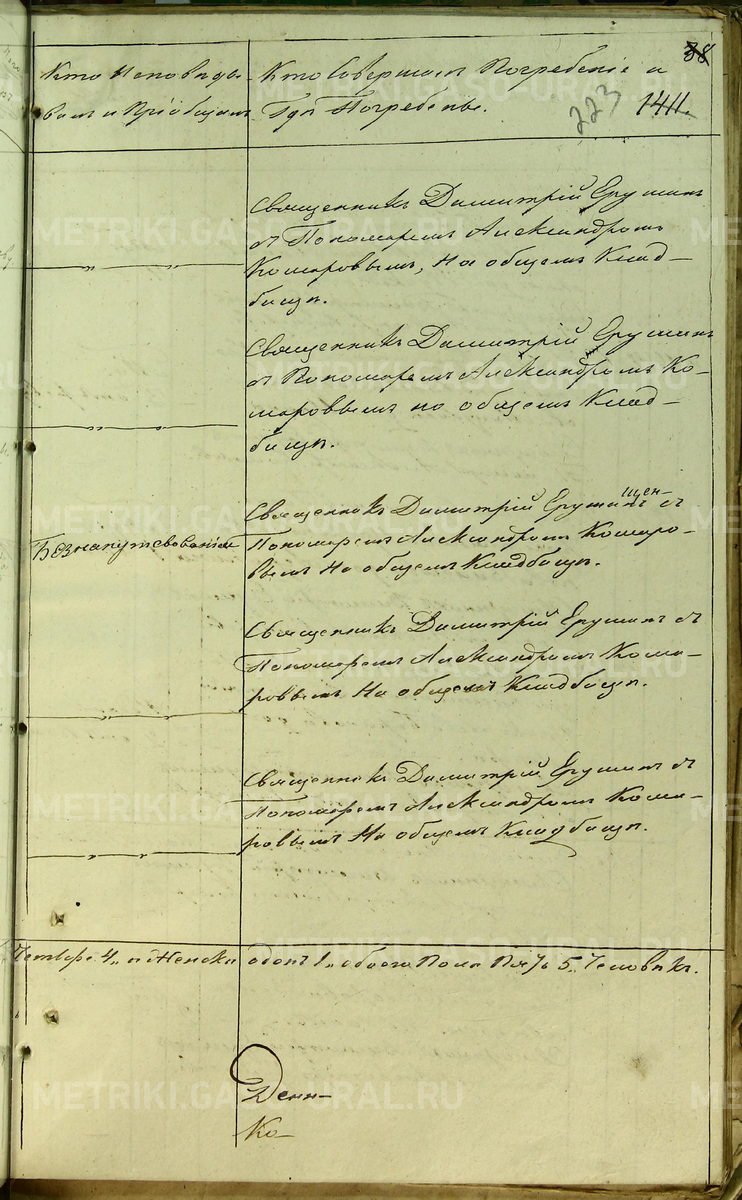 88
223
1411.
Кто Исповѣды-
валъ и Пріобщалъ
Кто Совершалъ Погребеніе и
Гдѣ Погребены.
Священникъ Димитрій Ерушинъ
съ Пономаремъ Александромъ
Комаровымъ, На общемъ Клад-
бищѣ.
Священникъ Димитрій Ерушинъ
съ Пономаремъ Александромъ Ко-
маровымъ на общемъ Клад-
бищѣ.
Безнапутствованія
Священникъ Димитрій Ерушинъ съ
Пономаремъ Александромъ Комаро-
вымъ На общемъ Кладбищѣ.
Священникъ Димитрій Ерушинъ съ
Пономаремъ Александромъ Кома-
ровымъ На общемъ Кладбищѣ.
Священникъ Димитрій Ерушинъ съ
Пономаремъ Александромъ Кома-
ровымъ На общемъ Кладбищѣ.
4. и Женска
1. обоего Пола Пять 5. Человѣкъ.
METRIKI.GASO-URAL.RU